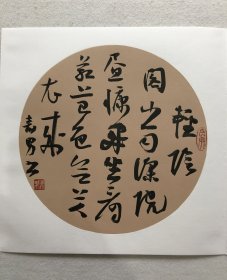 輕陰
閣小雨深院
晝慵開坐看
蒼苔色欲上人
衣來